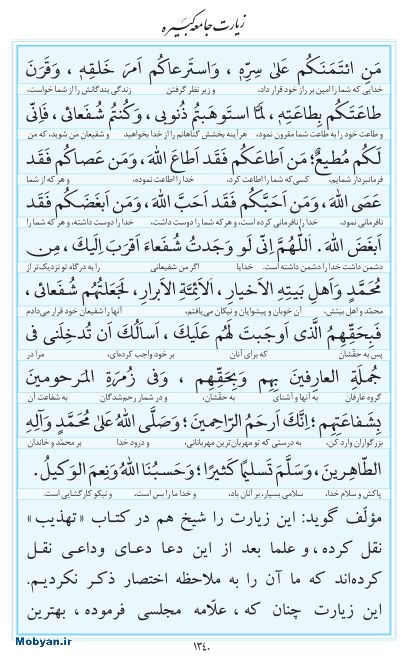 زیارت جامعه کبیره
مَنِ ائتَمَنَكُم عَلىٰ سِرِّهِ ، وَاستَرعاكُم اَمرَ خَلقِهِ ، وَقَرَنَ
خدایی که شما را امین بر راز خود قرار داد، و زیر نظر گرفتن زندگی بندگانش را از شما خواست،
طاعَتَكُم بِطاعَتِهِ ، لَمَّا استَوهَبتُم ذُنوبى ، وَكُنتُم شُفَعائى ، فَاِنّى
و طاعت خود را به طاعت شما مقرون نمود، هرآینه بخشش گناهانم را از خدا بخواهید و شفیعان من شوید، که من
لَكُم مُطيعٌ؛ مَن اَطاعَكُم فَقَد اَطاعَ اللهَ ، وَمَن عَصاكُم فَقَد
فرمانبردار شمایم. کسی‌که شما را اطاعت کرد، خدا را اطاعت نموده، و هر که از شما
عَصَى اللهَ ، وَمَن اَحَبَّكُم فَقَد اَحَبَّ اللهَ ، وَمَن اَبغَضَكُم فَقَد
نافرمانی نمود، خدا را نافرمانی کرده است، و هر که شما را دوست داشت، خدا را دوست داشته، و هر که شما را
اَبغَضَ اللهَ . اَللّٰهُمَّ اِنّى لَو وَجَدتُ شُفَعاءَ اَقرَبَ اِلَيكَ ، مِن
دشمن داشت خدا را دشمن داشته است. خدایا اگر من شفیعانی را به درگاه تو نزدیک‌تر از
مُحَمَّدٍ وَاَهلِ بَيتِهِ الاَخيارِ ، اَلاَئِمَّةِ الاَبرارِ ، لَجَعَلتُهُم شُفَعائى ،
محمّد و اهل بیتش، آن خوبان و پیشوایان و نیکان می‌یافتم، آنها را شفیعان خود قرار می‌دادم
فَبِحَقِّهِمُ الَّذى اَوجَبتَ لَهُم عَلَيكَ ، اَسأَلُكَ اَن تُدخِلَنى فى
پس به حقّشان که برای آنان بر خود واجب کرده‌ای، مرا در
جُملَةِ العارِفينَ بِهِم وَبِحَقِّهِم ، وَفى زُمرَةِ المَرحومينَ
گروه عارفان به آنها و آشنای به حقّشان، و در شمار رحم‌شدگان به شفاعت آن
بِشَفاعَتِهِم ؛ اِنَّكَ اَرحَمُ الرّاحِمينَ ؛ وَصَلَّى اللهُ عَلىٰ مُحَمَّدٍ وَآلِهِ
بزرگواران وارد کن، به درستی که تو مهربان‌ترین مهربانانی، و درود خدا بر محمّد و خاندان
الطّاهِرينَ ، وَسَلَّمَ تَسليمًا كَثيرًا ؛ وَحَسبُنَا اللهُ وَنِعمَ الوَكيلُ .
پاکش و سلام خدا، سلامی بسیار، بر آنان باد، و خدا ما را بس است، و نیکو کارگشایی است.
مؤلّف گوید: این زیارت را شیخ هم در کتاب «تهذیب»
نقل کرده، و علما بعد از این دعا دعای وداعی نقل
کرده‌اند که ما آن را به ملاحظه اختصار ذکر نکردیم.
این زیارت چنان که، علّامه مجلسی فرموده، بهترین
Mobyan.ir
۱۳٤۰